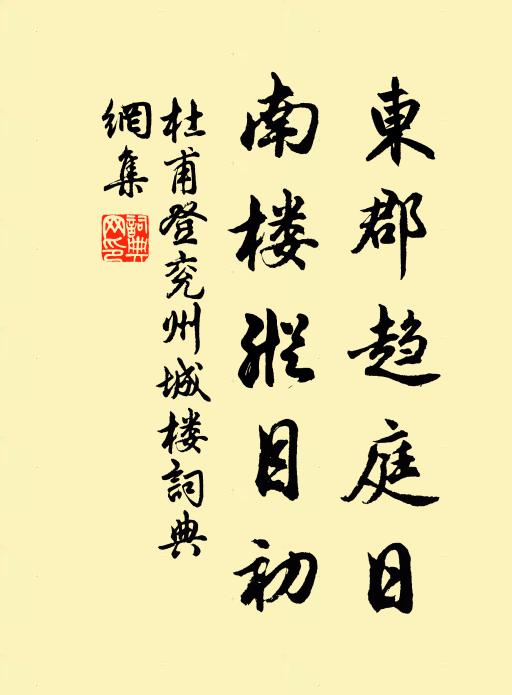 東郡趋庭日
南楼縱目初
杜甫登兖州城楼詞典
網集
詞典
网印